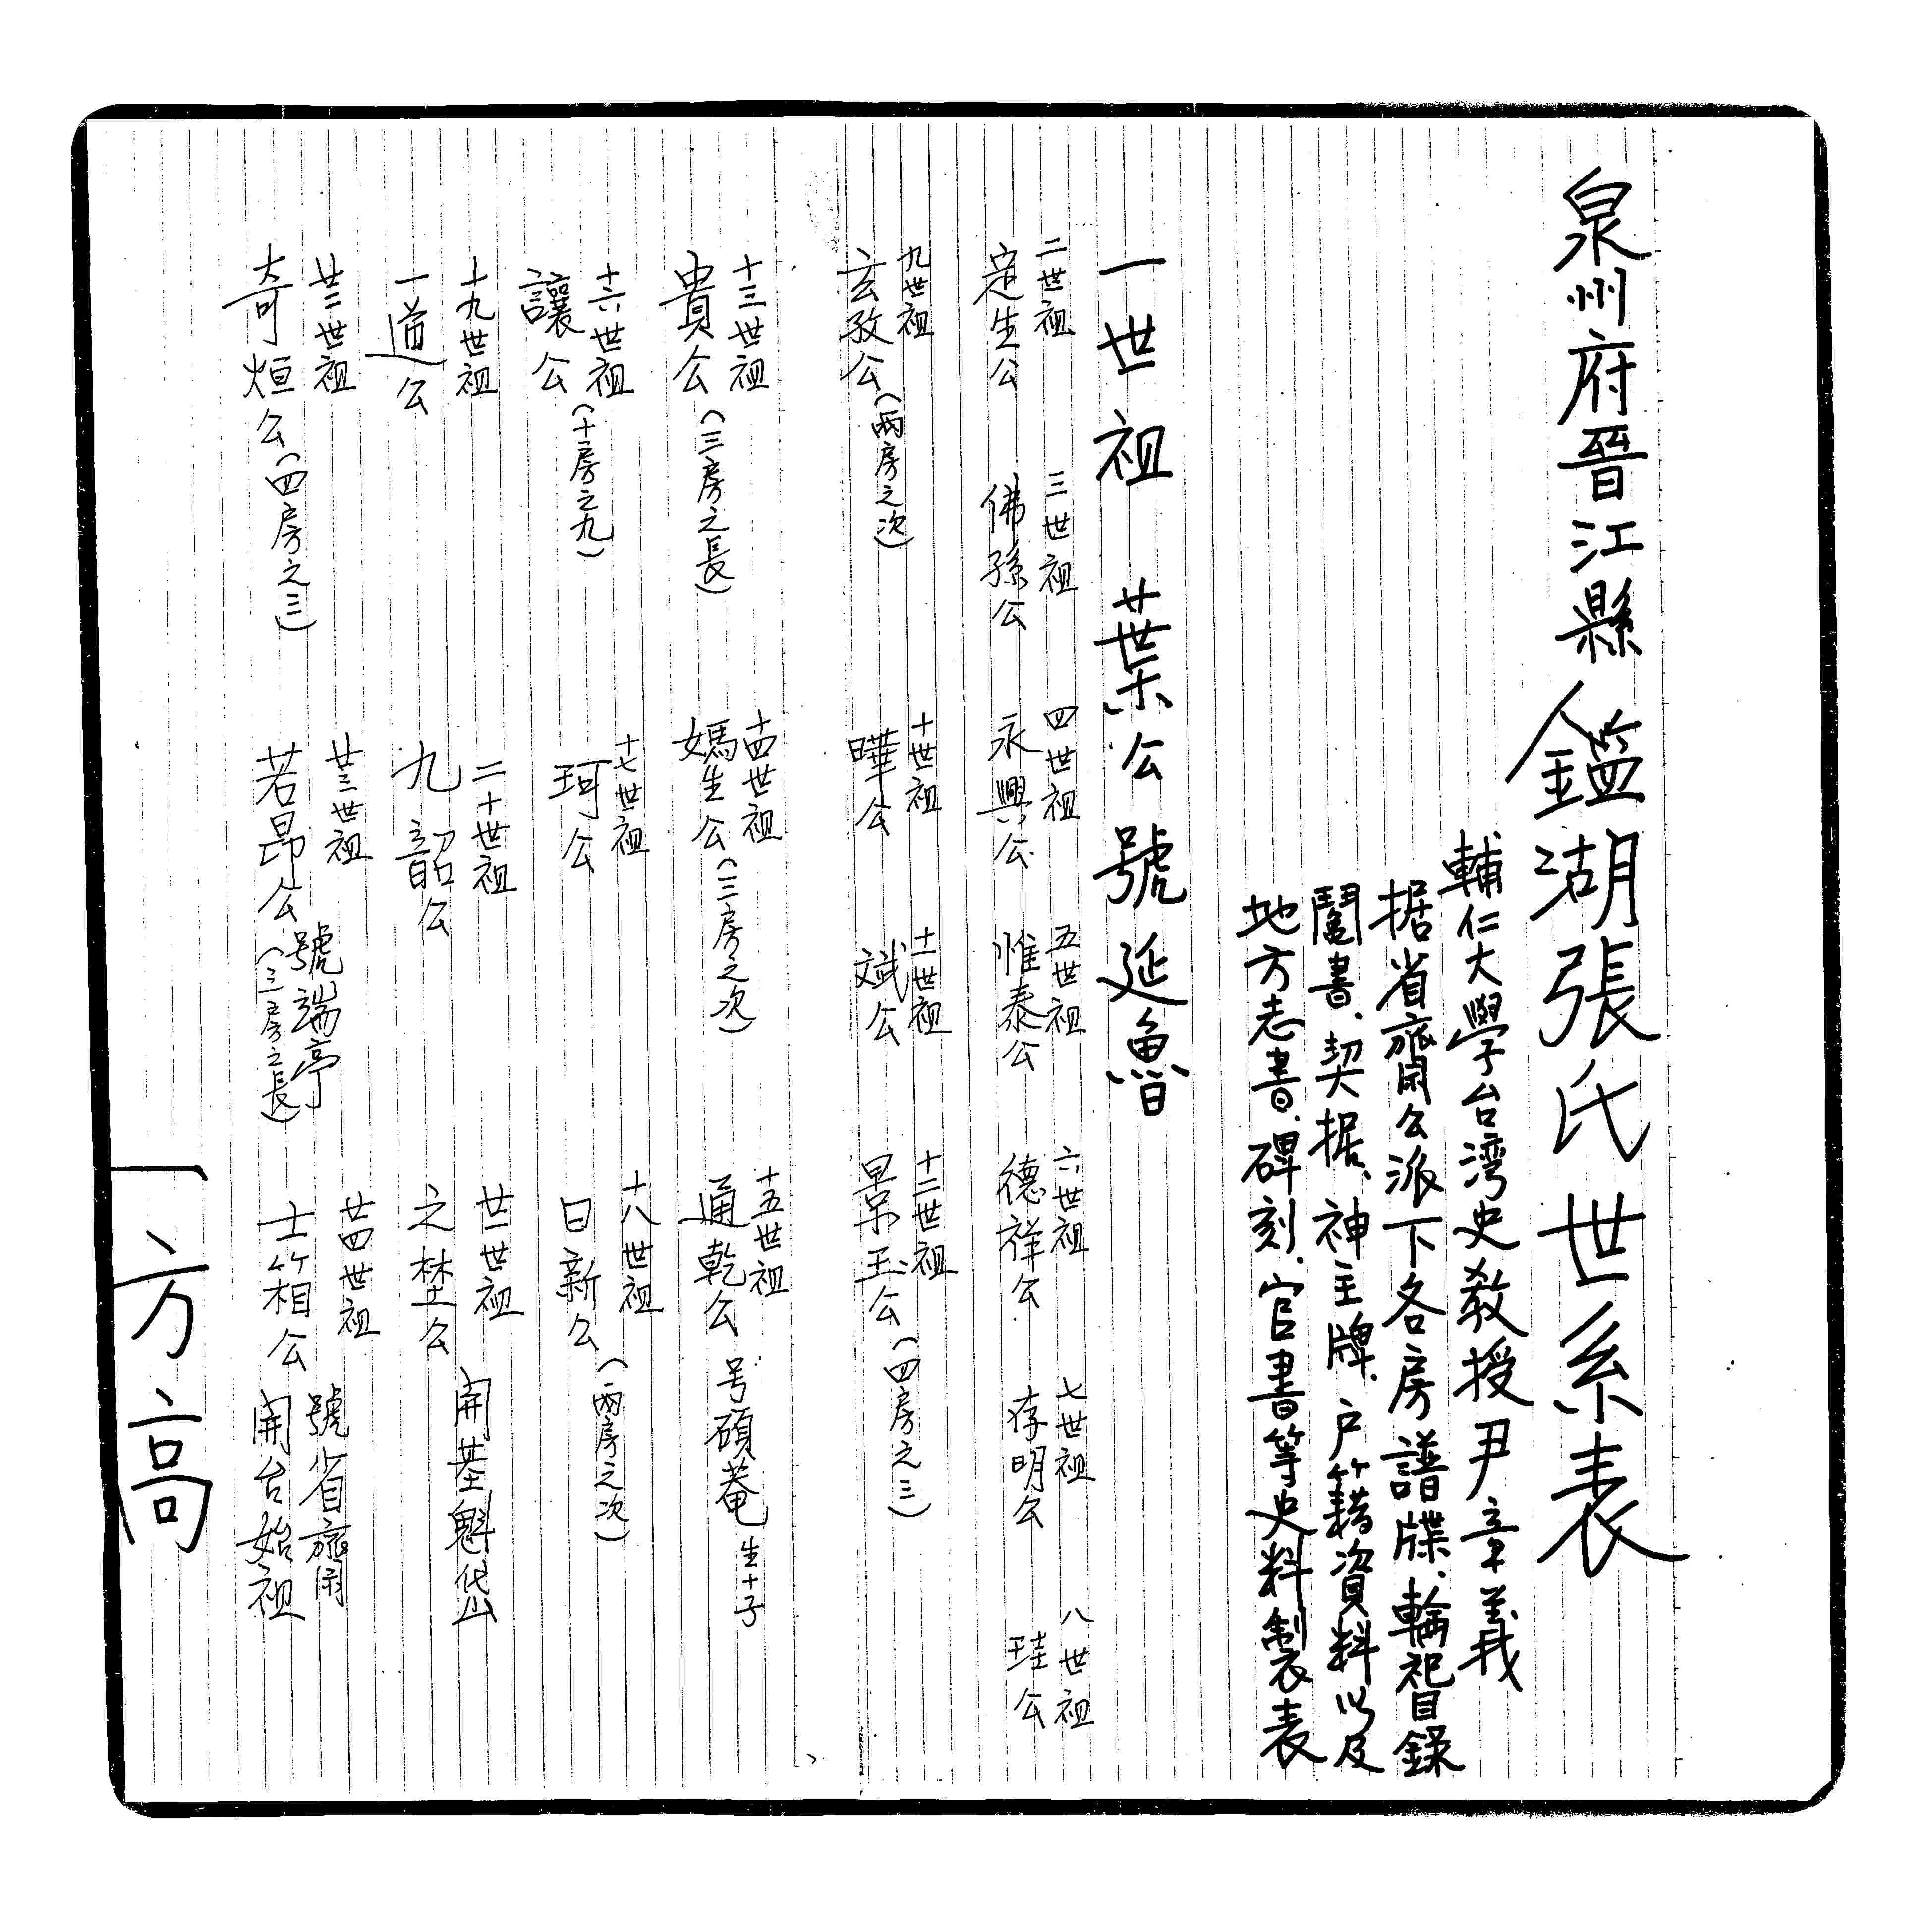 泉州府晉江縣鑑湖張氏世系表
輔仁大學台湾史教授尹章義
据省齋公派下各房譜牒、輪祀目錄
鬮書、契据、神主牌、户籍資料以及
地方志書、碑刻、官書等史料製表
一世祖 葉公 號延魯
二世祖 三世祖 四世祖 五世祖 六世祖 七世祖 八世祖
定生公 佛孫公 永興公 惟泰公 德祥公 存明公 珪公
九世祖 十世祖 十一世祖 十二世祖
玄孜公(兩房之次) 曄公 斌公 景玉公(四房之三)
十三世祖 十四世祖 十五世祖
貴公(三房之長) 媽生公(三房之次) 通乾公 号碩菴 生十子
十六世祖 十七世祖 十八世祖
讓公(十房之九) 珂公 日新公(兩房之次)
十九世祖 二十世祖 廿一世祖
一道公 九韶公 之埜公 開基魁岱
廿二世祖 廿三世祖 廿四世祖
奇烜公(四房之三) 若昂公 號端亭(三房之長) 士箱公 號省齋 開台始祖
一方高